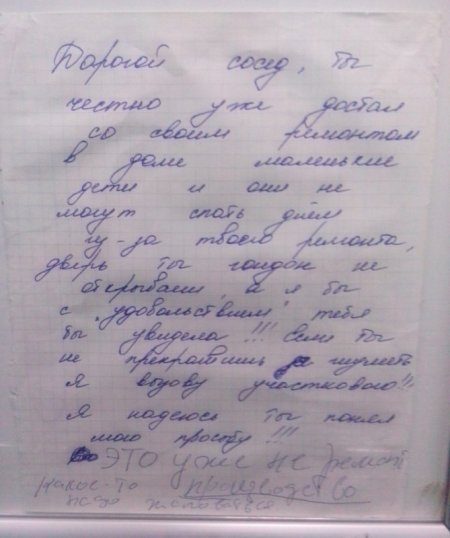 Дорогой сосед, ты
честно уже достал
со своим ремонтом
в доме маленькие
дети и они не
могут спать днём
из-за твоего ремонта,
дверь ты гандон не
открываеш, а я бы
с "удовольствием" тебя
бы увидела!!! Если ты
не прекратишь шуметь
я вызову участкового!!
Я надеюсь ты понял
мою прозьбу!!!
ЭТО уже не ремонт
какое-то производство
надо жаловаться